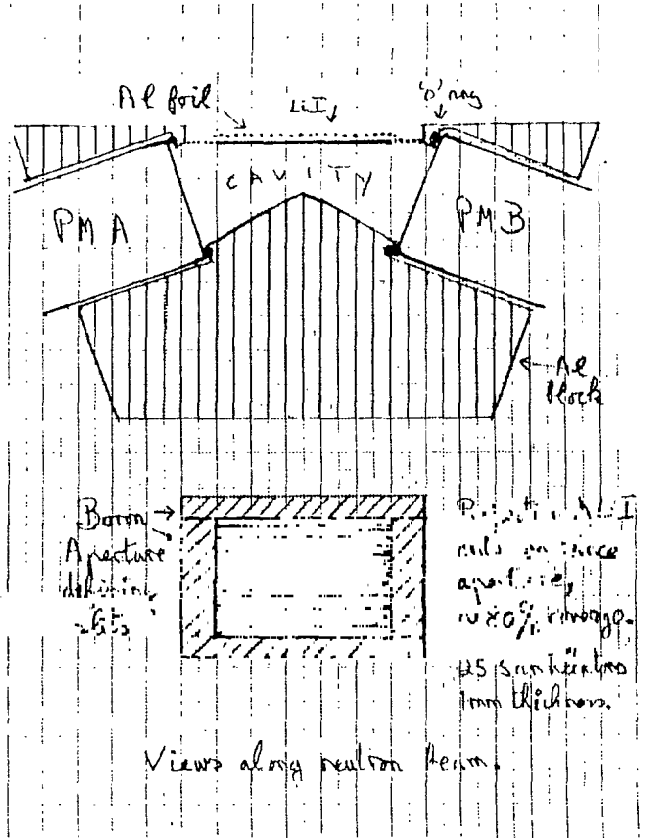 Al foil
LiI
'O' ring
CAVITY
PM A
PM B
Al
block
Boron
Aperture
defining
slits
I
aperture,
~ 80% coverage.
1mm thickness.
Views along neutron beam.